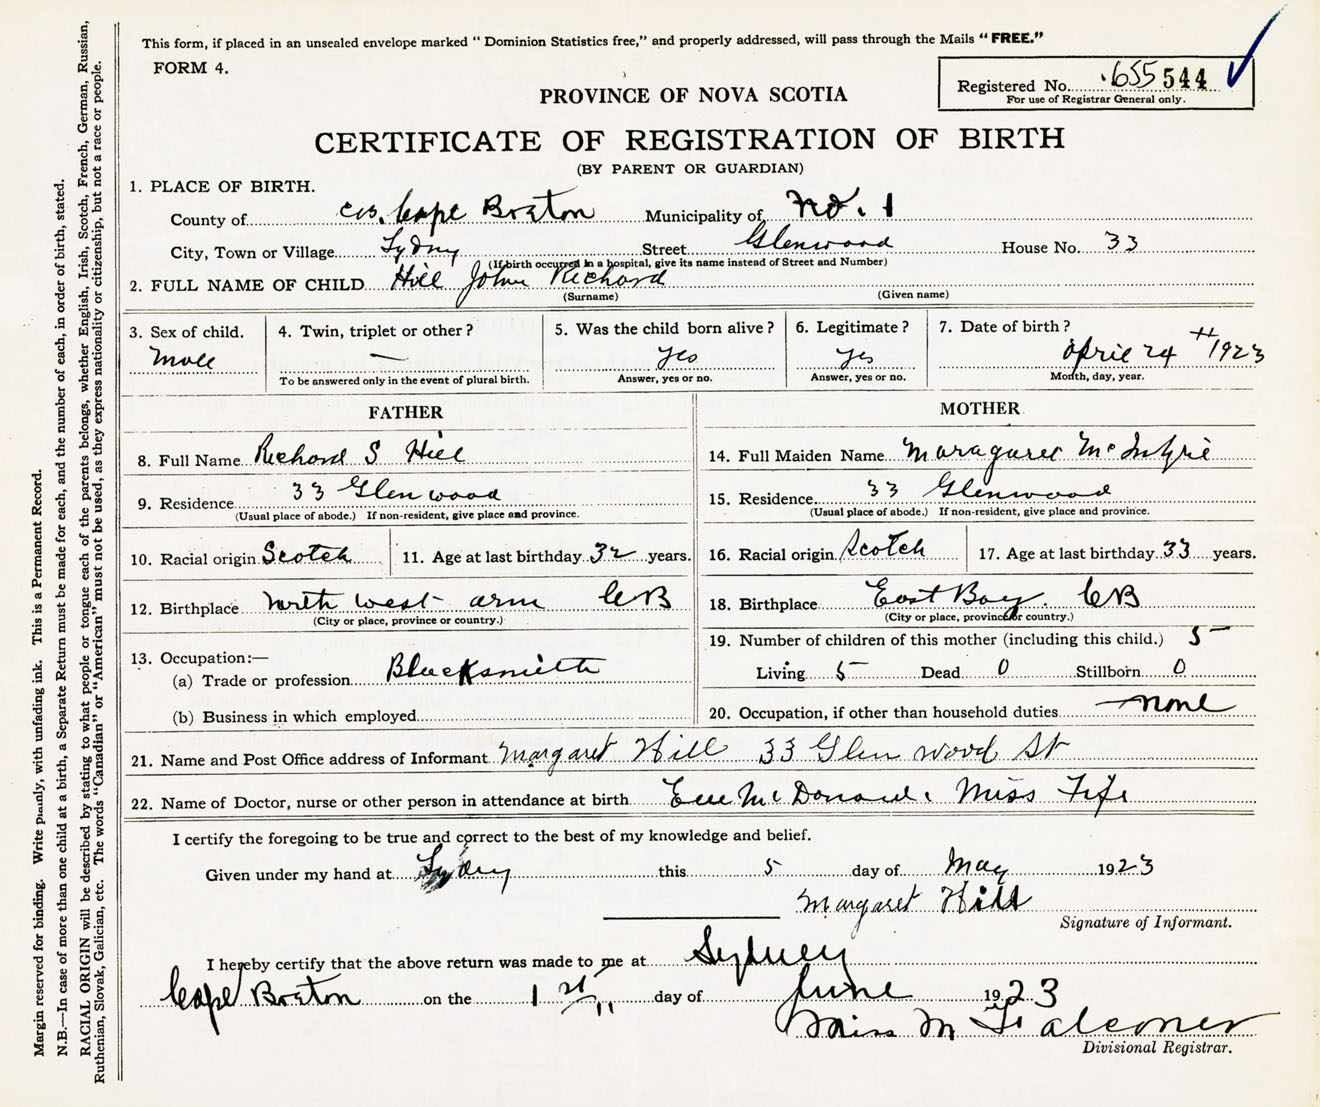 This form, if placed in an unsealed envelope marked " Dominion Statistics free," and properly addressed, will pass through the Mails " FREE."
FORM 4.
Registered No. 655 544
For use of Registrar General only.
PROVINCE OF NOVA SCOTIA
CERTIFICATE OF REGISTRATION OF BIRTH
(BY PARENT OR GUARDIAN)
1. PLACE OF BIRTH.
County of Cape Breton Municipality of No. 1
City, Town or Village Sydny Street Glenwood House No. 33
(If birth occurred in a hospital, give its name instead of Street and Number)
2. FULL NAME OF CHILD Hill John Richard
(Surname) (Given name)
3. Sex of child. 4. Twin, triplet or other ? 5. Was the child born alive ? 6. Legitimate ? 7. Date of birth ?
Male — yes yes April 24th 1923
To be answered only in the event of plural birth. Answer, yes or no. Answer, yes or no. Month, day, year.
FATHER MOTHER
8. Full Name Richard S Hill 14. Full Maiden Name Maragaret McIntyrie
9. Residence 33 Glenwood 15. Residence 33 Glenwood
(Usual place of abode.) If non-resident, give place and province. (Usual place of abode.) If non-resident, give place and province.
10. Racial origin Scotch 11. Age at last birthday 32 years. 16. Racial origin Scotch 17. Age at last birthday 33 years.
12. Birthplace north west arm CB 18. Birthplace East Bay. CB
(City or place, province or country.) (City or place, province or country.)
19. Number of children of this mother (including this child.) 5
13. Occupation:—
(a) Trade or profession Blacksmith Living 5 Dead 0 Stillborn 0
(b) Business in which employed 20. Occupation, if other than household duties none
21. Name and Post Office address of Informant Margaret Hill 33 Glen wood St
22. Name of Doctor, nurse or other person in attendance at birth Miss Fife
I certify the foregoing to be true and correct to the best of my knowledge and belief.
Given under my hand at Sydny this 5 day of May 1923
Margaret Hill
Signature of Informant.
I hereby certify that the above return was made to me at Sydney
Cape Breton on the 1st day of June 1923
Miss M Falconer
Divisional Registrar.
Margin reserved for binding. Write plainly, with unfading ink. This is a Permanent Record.
N.B.—In case of more than one child at a birth, a Separate Return must be made for each, and the number of each, in order of birth, stated.
RACIAL ORIGIN will be described by stating to what people or tongue each of the parents belongs, whether English, Irish, Scotch, French, German, Russian,
Ruthenian, Slovak, Galician, etc. The words "Canadian" or "American" must not be used, as they express nationality or citizenship, but not a race or people.